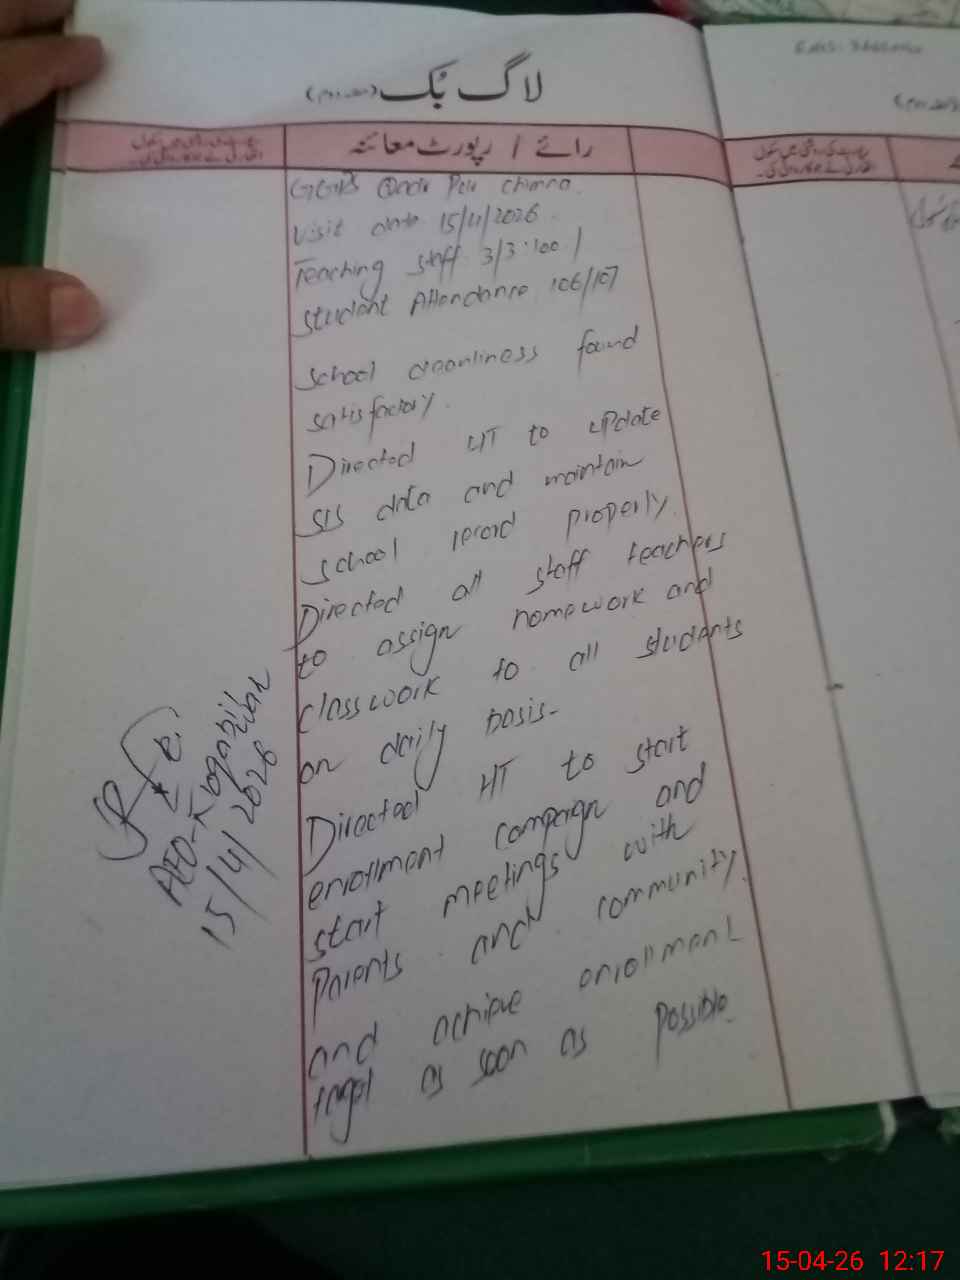 لاگ بک (حصہ دوم)
رائے / رپورٹ معائنہ
Visit date 15/4/2026
Teaching staff 3/3 : 100 /
Student Attendance 106/107
School cleanliness found
satisfactory.
Directed HT to update
SIS data and maintain
school record properly.
Directed all staff teachers
to assign homework and
classwork to all students
on daily basis-
Directed HT to start
enrollment campaign and
start meetings with
Parents and community.
and achieve enrollment
target as soon as possible.
AEO-
15/4/2026
15-04-26 12:17